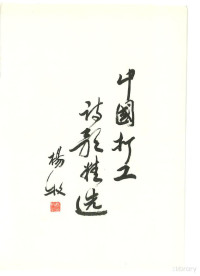 中國打工
詩歌精选
楊牧